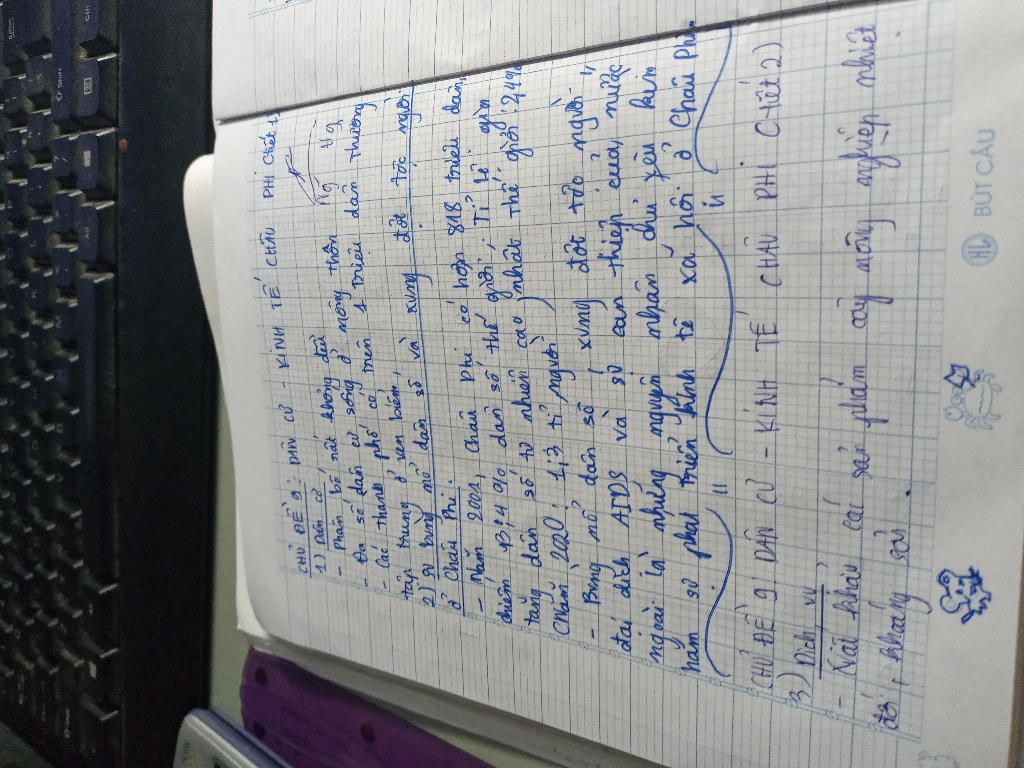 CHỦ ĐỀ 9: DÂN CƯ - KINH TẾ CHÂU PHI (tiết 1)
1) Dân cư
- Phân bố rất không đều
- Đa số dân cư sống ở nông thôn
- Các thành phố có trên 1 triệu dân thường
tập trung ở ven biển.
2) Sự bùng nổ dân số và xung đột tộc người
ở Châu Phi:
- Năm 2001, Châu Phi có hơn 818 triệu dân,
chiếm 13,4% dân số thế giới. Tỉ lệ gia
tăng dân số tự nhiên cao nhất thế giới: 2,4%
(năm 2020: 1,3 tỉ người)
- Bùng nổ dân số, xung đột tộc người,
đại dịch AIDS và sự can thiệp của nước
ngoài là những nguyên nhân chủ yếu kìm
hãm sự phát triển kinh tế xã hội ở Châu Phi.
CHỦ ĐỀ 9: DÂN CƯ - KINH TẾ CHÂU PHI (tiết 2)
3) Dịch vụ
- Xuất khẩu các sản phẩm cây công nghiệp nhiệt
đới, khoáng sản.
HL BÚT CÂU